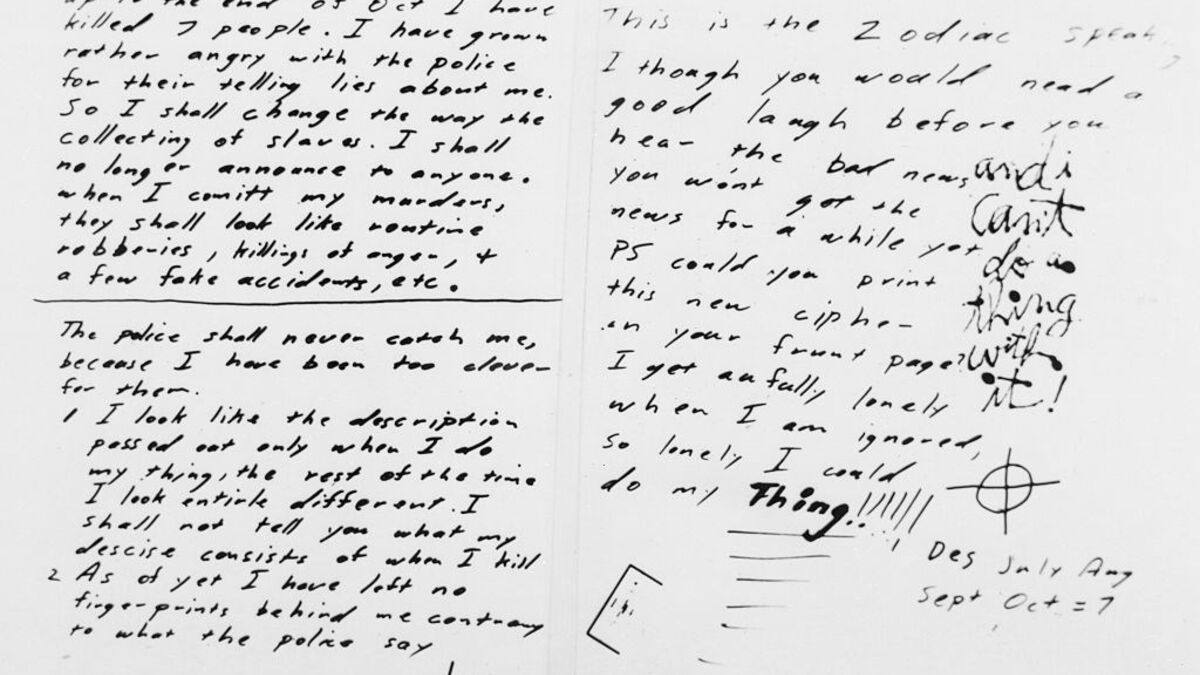 up to the end of Oct I have
killed 7 people. I have grown
rather angry with the police
for their telling lies about me.
So I shall change the way the
collecting of slaves. I shall
no longer announce to anyone.
when I comitt my murders,
they shall look like routine
robberies, killings of anger, +
a few fake accidents, etc.
The police shall never catch me,
because I have been too clever
for them.
1 I look like the description
passed out only when I do
my thing, the rest of the time
I look entirle different. I
shall not tell you what my
descise consists of when I kill
2 As of yet I have left no
fingerprints behind me contrary
to what the police say
This is the Zodiac speak
I though you would nead a
good laugh before you
hear the bad news
you won't get the
news for a while yet
PS could you print
this new cipher
in your frunt page?
I get aufully lonely
when I am ignored,
so lonely I could
do my Thing!!!!!!
and i
can't
do a
thing
with
it!
Des July Aug
Sept Oct = 7